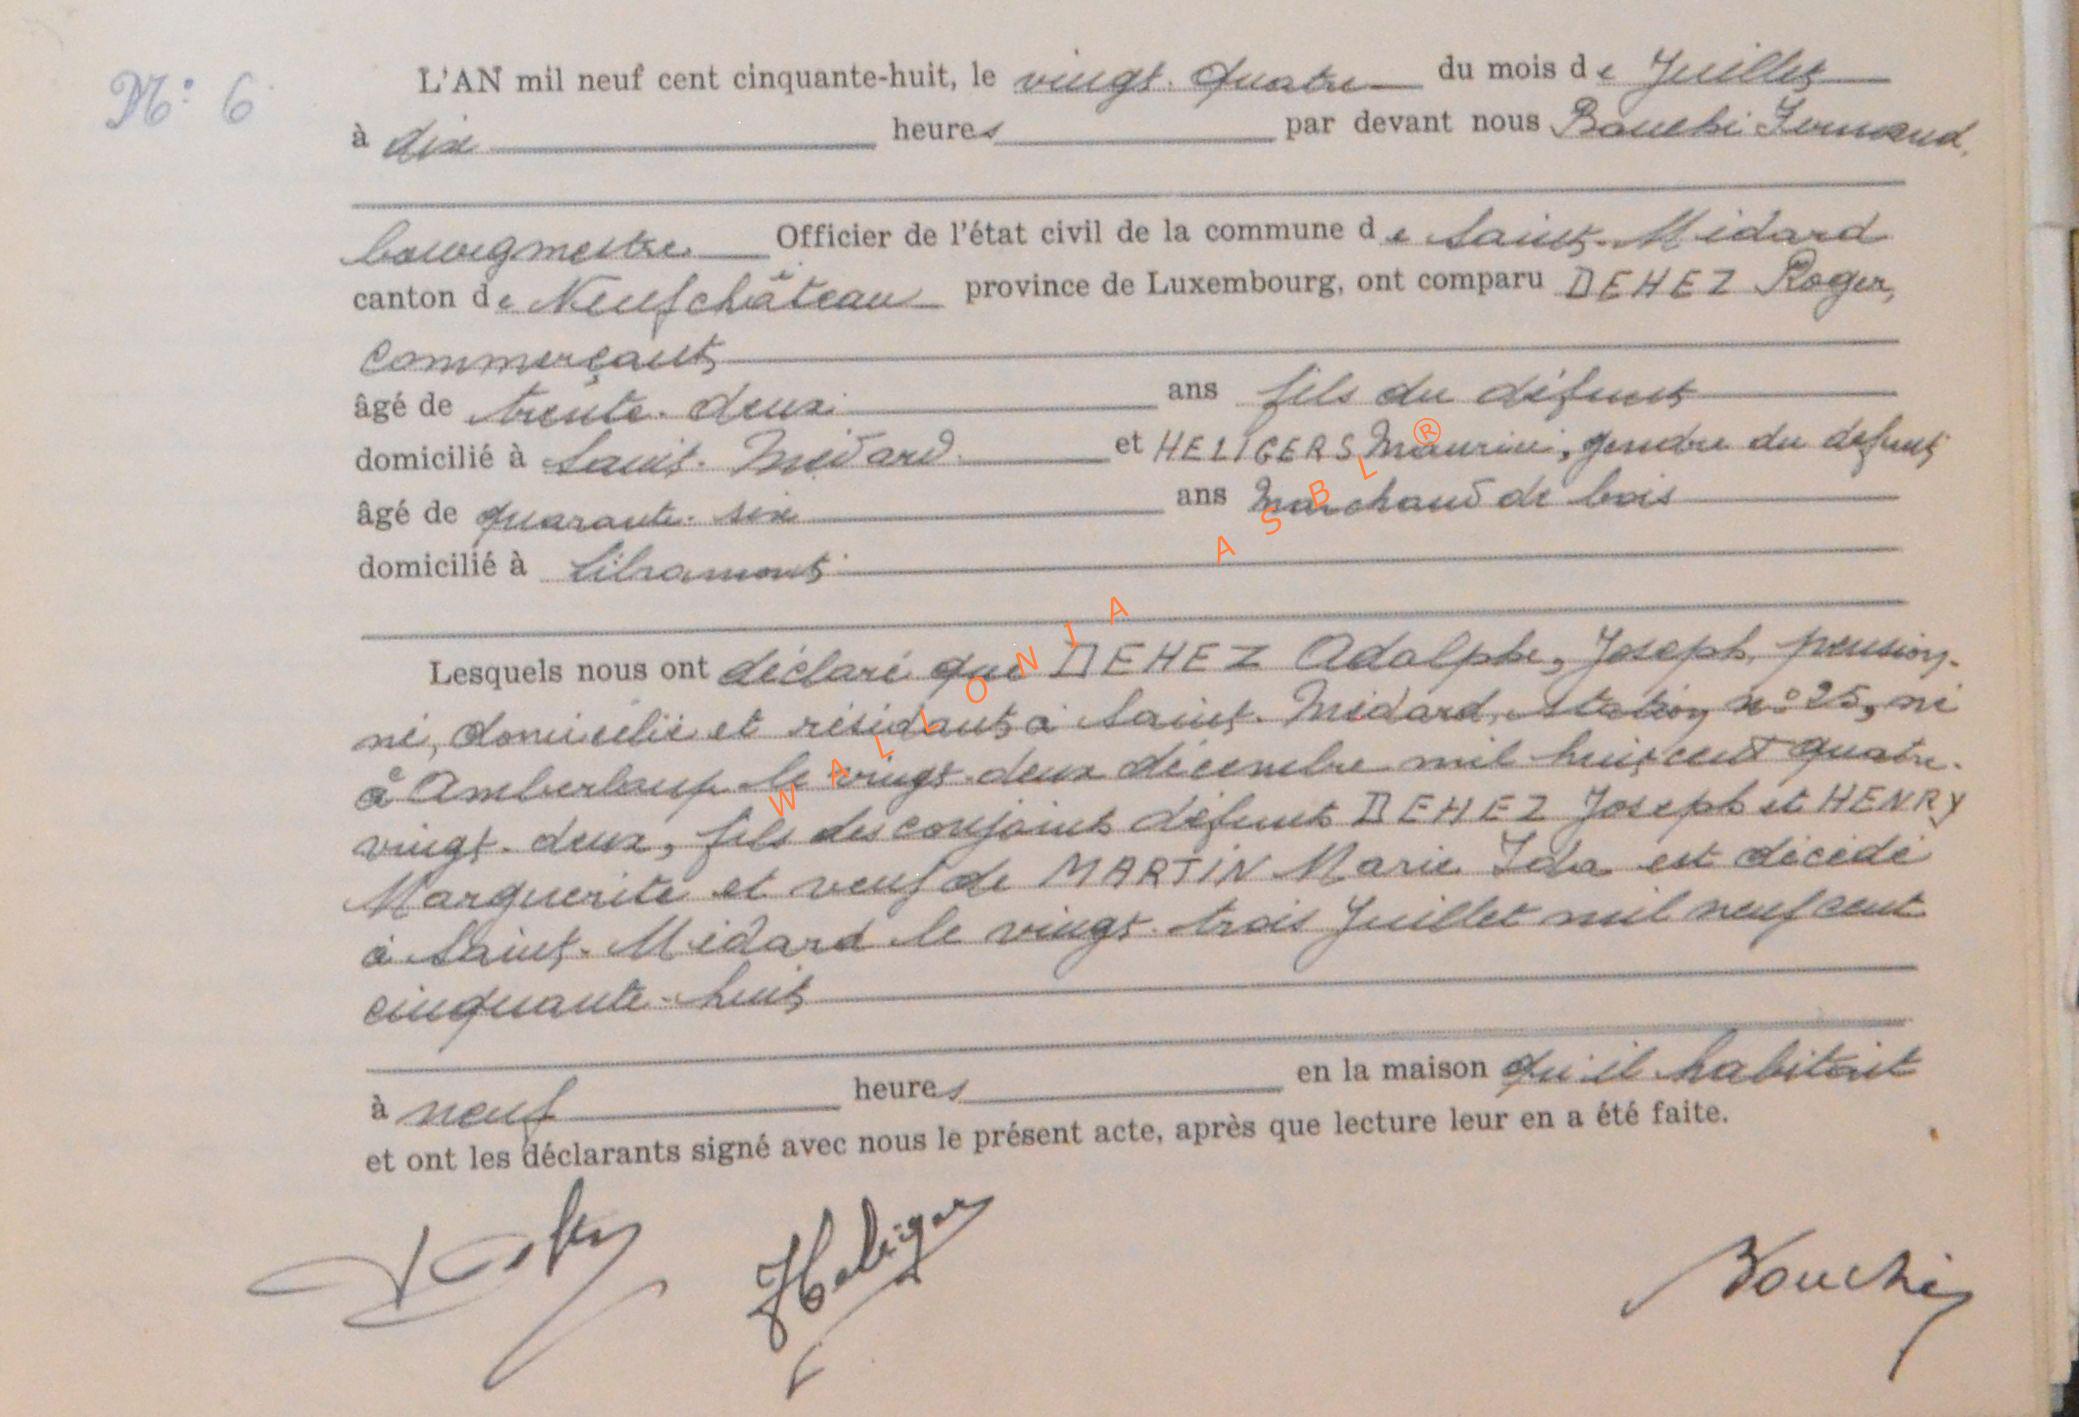 N° 6
L'AN mil neuf cent cinquante-huit, le vingt-quatre du mois de Juillet
à dix heures par devant nous Bouché Fernand,
bourgmestre Officier de l'état civil de la commune de Saint-Médard
canton de Neufchâteau province de Luxembourg, ont comparu DEHEZ Roger,
commerçant
âgé de trente-deux ans fils du défunt
domicilié à Saint-Médard et HELIGERS Maurice, gendre du défunt
âgé de quarante-six ans marchand de bois
domicilié à Libramont
Lesquels nous ont déclaré que DEHEZ Adolphe, Joseph, pension-
né, domicilié et résidant à Saint-Médard, station n° 25, né
à Amberloup le vingt-deux décembre mil huit cent quatre-
vingt-deux, fils des conjoints défunts DEHEZ Joseph et HENRY
Marguerite et veuf de MARTIN Marie Ida est décédé
à Saint-Médard le vingt-trois Juillet mil neuf cent
cinquante-huit
à neuf heures en la maison qu'il habitait
et ont les déclarants signé avec nous le présent acte, après que lecture leur en a été faite.
Heligers Bouché
WALLONIA ASBL ®